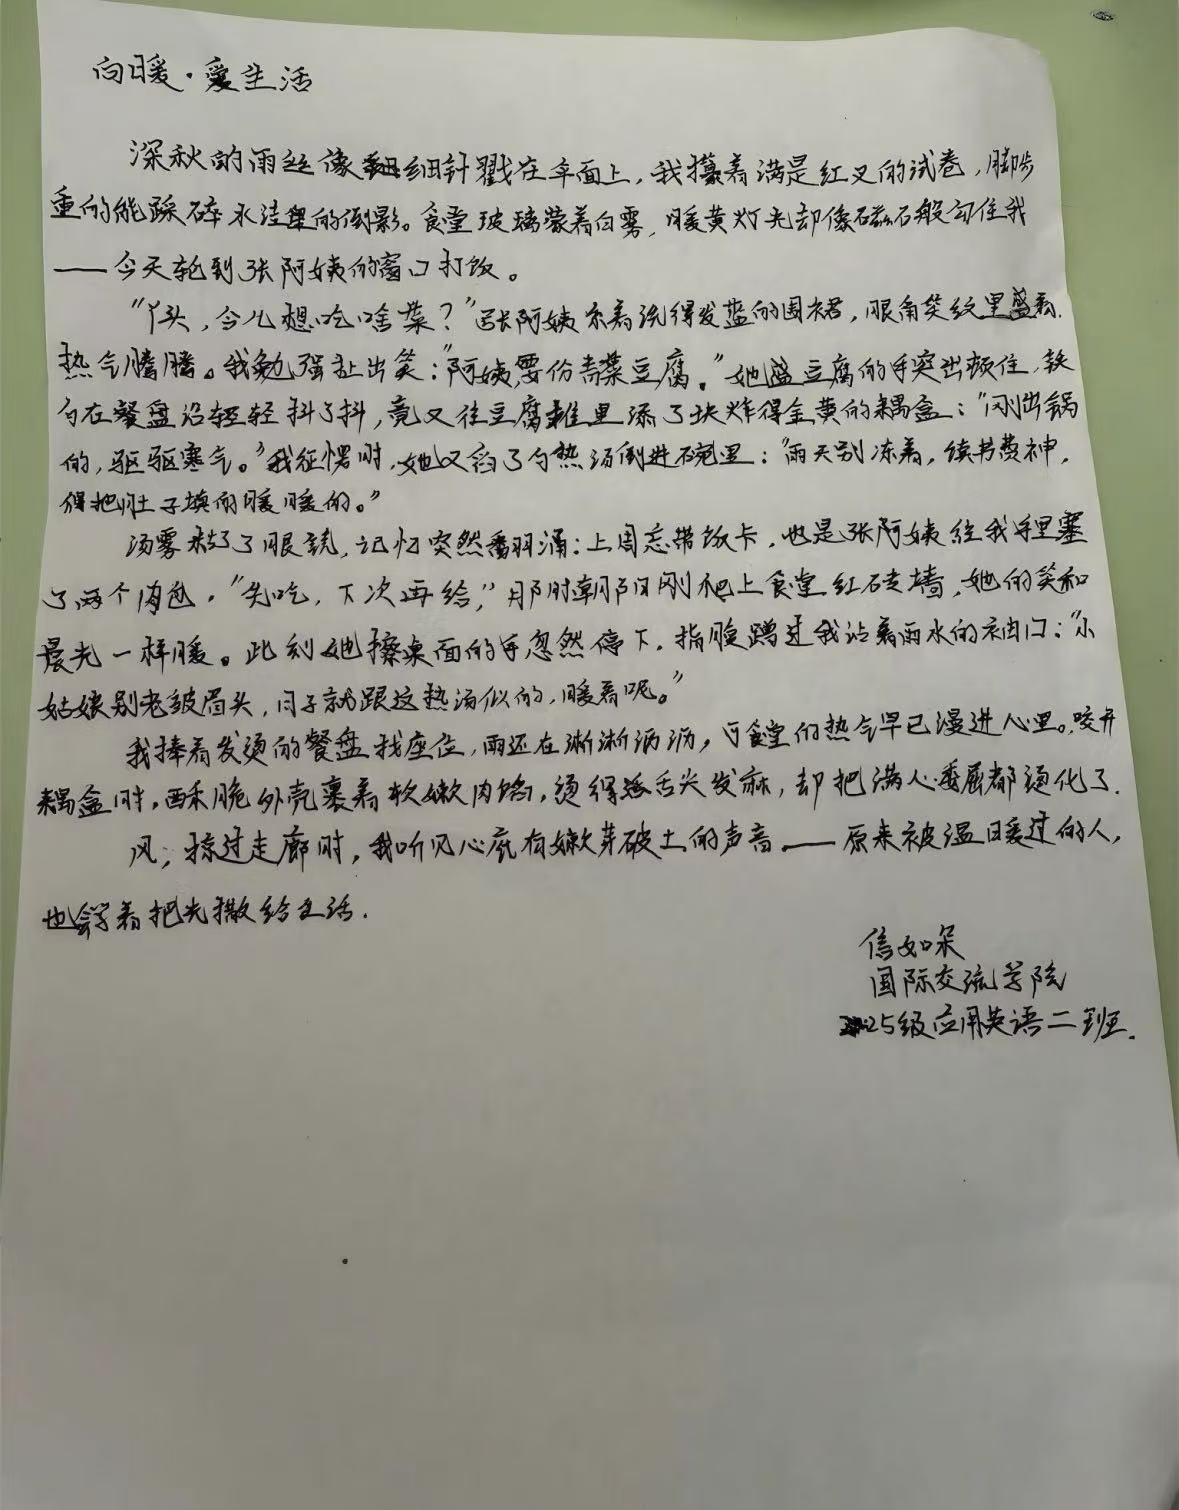 向暖·爱生活
深秋的雨丝像细针戳在伞面上，我攥着满是红叉的试卷，脚步
重的能踩碎水洼里的倒影。食堂玻璃蒙着白雾，暖黄灯光却像磁石般勾住我
——今天轮到张阿姨的窗口打饭。
“丫头，今儿想吃啥菜？”张阿姨系着洗得发蓝的围裙，眼角笑纹里盛着
热气腾腾。我勉强扯出笑：“阿姨，要份青菜豆腐。”她盛豆腐的手突出顿住，铁
勺在餐盘沿轻轻抖了抖，竟又往豆腐堆里添了块炸得金黄的藕盒：“刚出锅
的，驱驱寒气。”我怔愣时，她又舀了勺热汤倒进碗里：“雨天别冻着，读书费神，
得把肚子填的暖暖的。”
汤雾粘了眼镜，记忆突然翻涌：上周忘带饭卡，也是张阿姨往我手里塞
了两个肉包，“先吃，下次再给，”那时朝阳刚爬上食堂红砖墙，她的笑和
晨光一样暖。此刻她擦桌面的手忽然停下，指腹蹭过我沾着雨水的袖口：“小
姑娘别老皱眉头，日子就跟这热汤似的，暖着呢。”
我捧着发烫的餐盘找座位，雨还在淅淅沥沥，可食堂的热气早已漫进心里。咬开
藕盒时，酥脆外壳裹着软嫩肉馅，烫得舌头发麻，却把满心委屈都烫化了.
风，掠过走廊时，我听见心底有嫩芽破土的声音——原来被温暖过的人，
也会学着把光撒给生活.
信如呆
国际交流学院
25级应用英语二班.